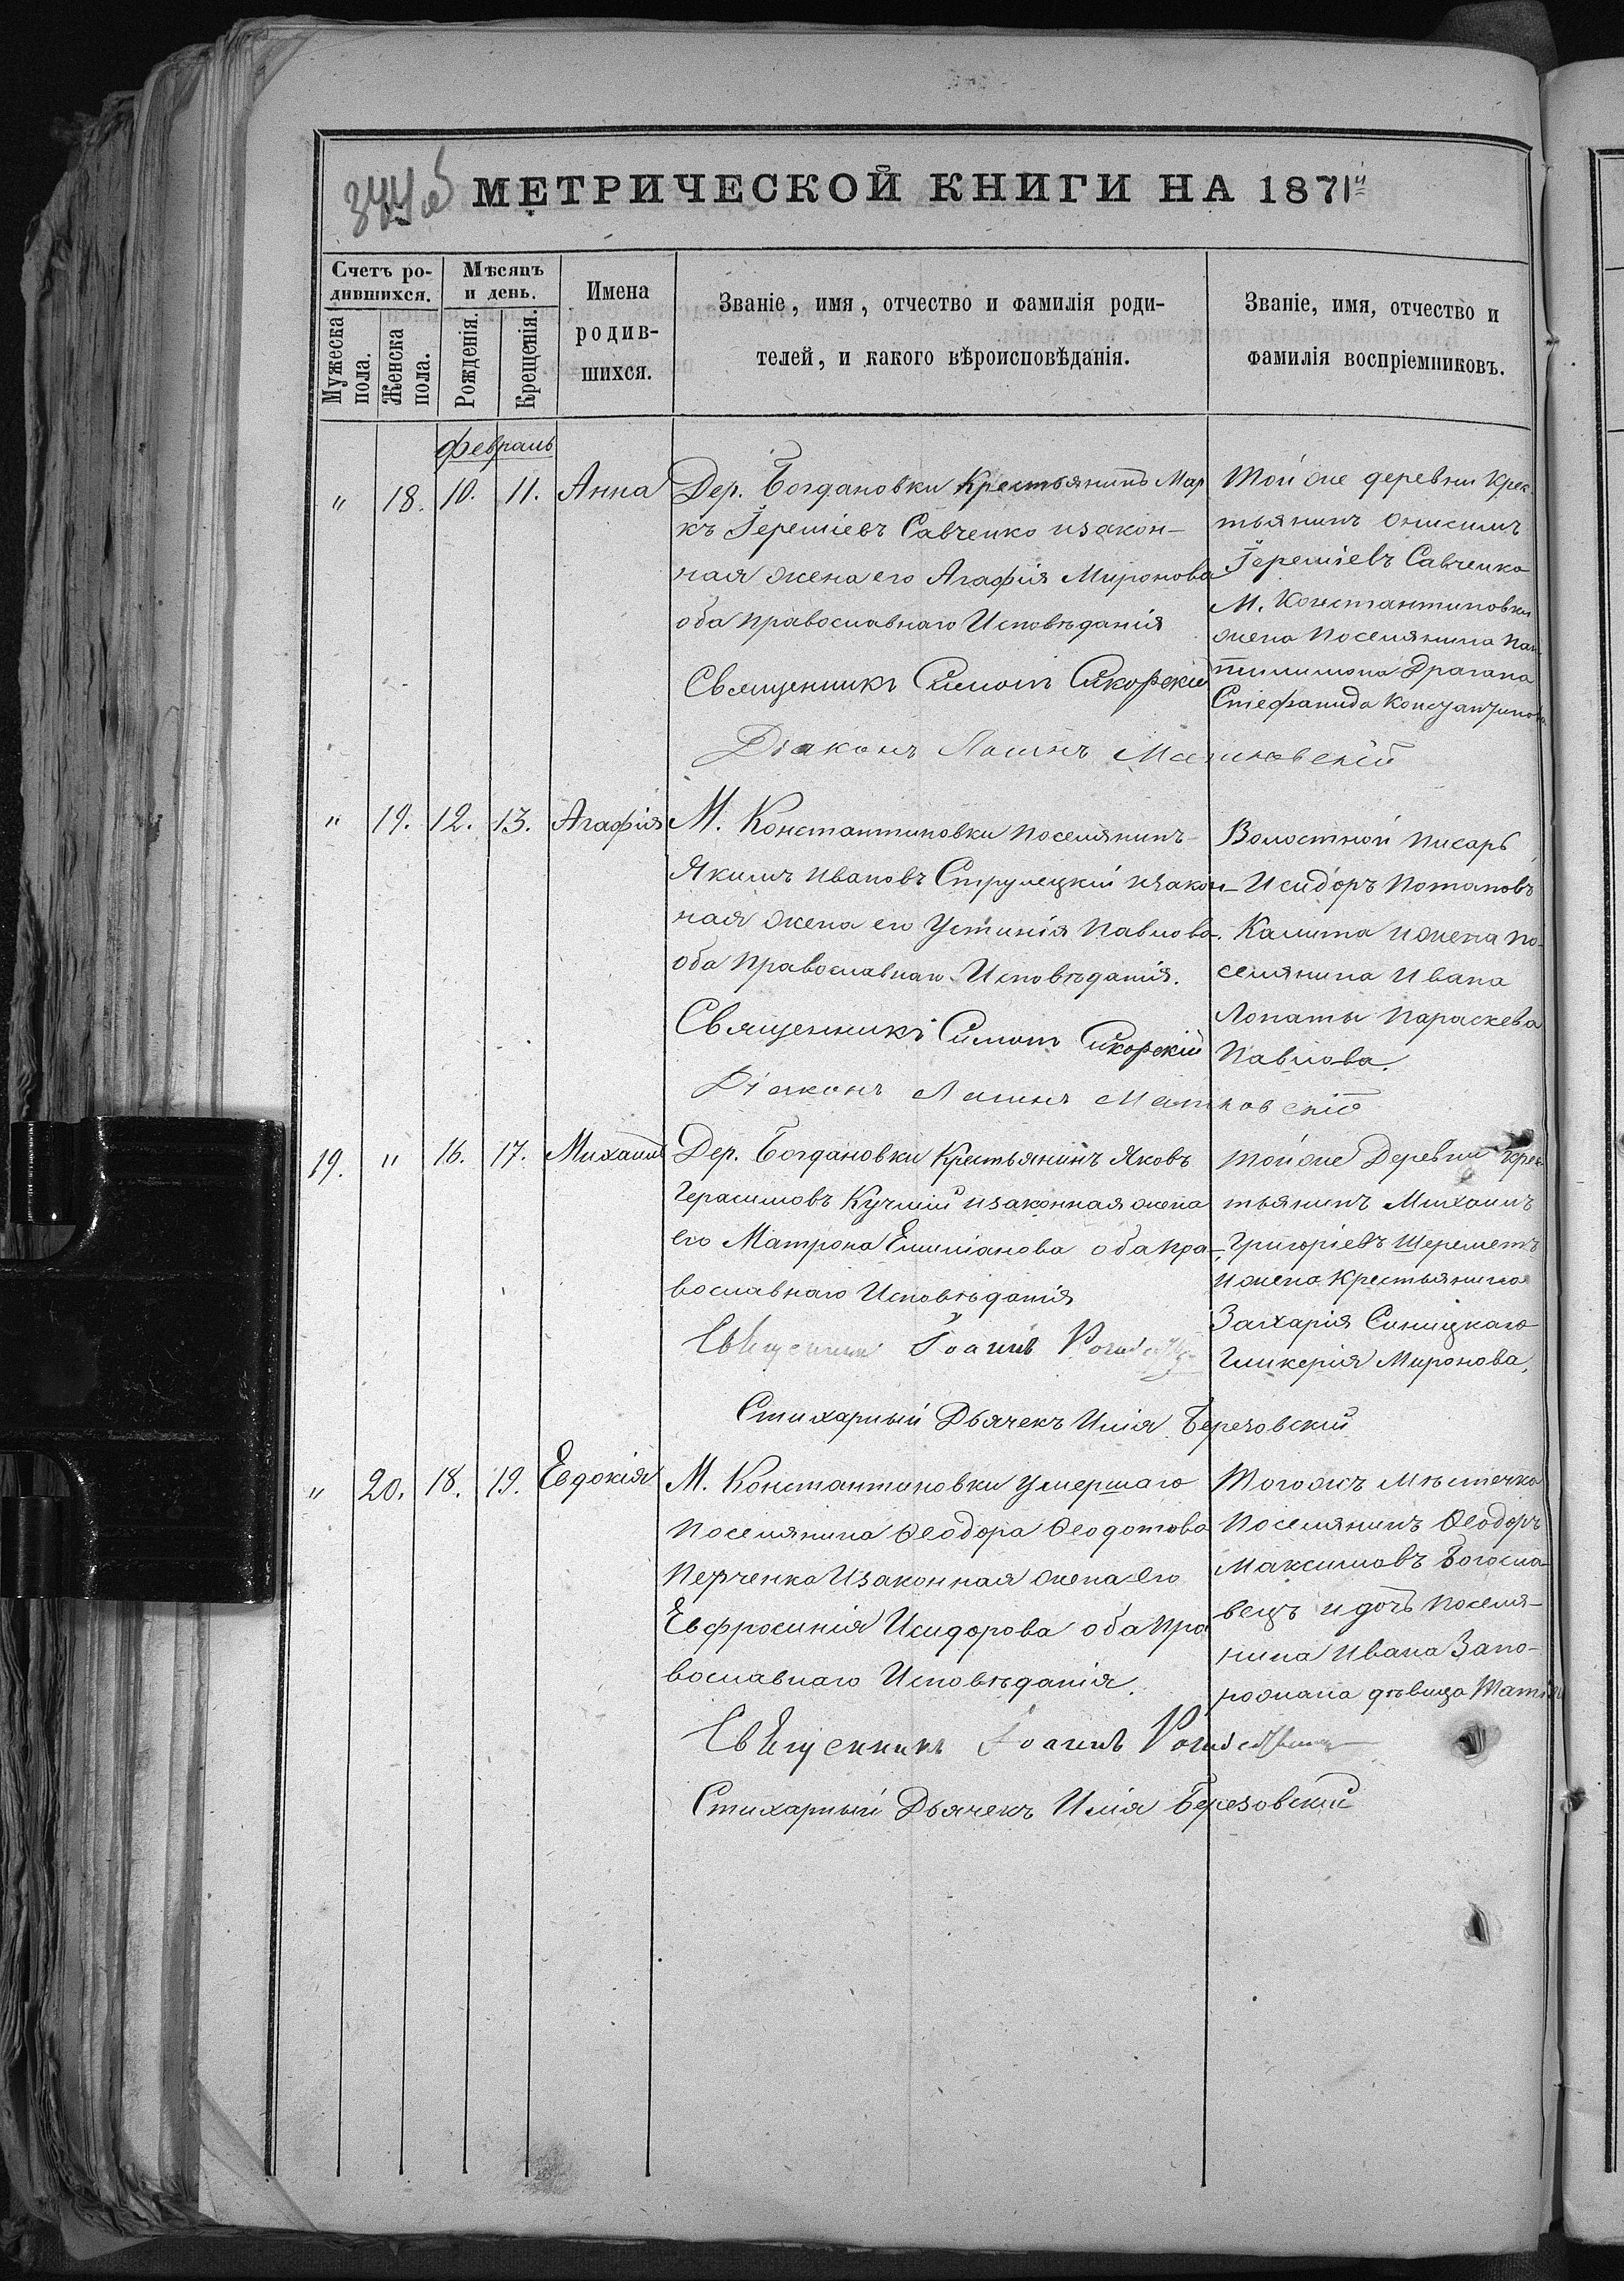 344об
МЕТРИЧЕСКОЙ КНИГИ НА 1871й
Счетъ ро-
дившихся.
Мѣсяцъ
и день.
Мужеска
пола.
Женска
пола.
Рожденія.
Крещенія.
Имена
родив-
шихся.
Званіе, имя, отчество и фамилія роди-
телей, и какого вѣроисповѣданія.
Званіе, имя, отчество и
фамилія воспріемниковъ.
Февраль
" 18. 10. 11. Анна
Дер. Богдановки Крестьянинъ Мар
къ Іереміевъ Савченко изакон-
ная жена его Агафія Миронова
оба православнаго Исповѣданія
Священникъ Симонъ Сикорскій
Діаконъ Маиновскій
Той же деревни Крес-
тьянинъ Онисимъ
Іереміевъ Савченко
М. Константиновки
жена Поселянина Пан-
тилимона Драгана
Стефанида Константинова
" 19. 12. 13. Агафія
М. Константиновки поселянинъ
Якимъ Ивановъ Струлецкій изакон-
ная жена его Устинія Павлова.
оба православнаго Исповѣданія.
Священникъ Симонъ Сикорскій
Діаконъ
Волостной писарь
Исидоръ Потаповъ
Калита и жена по-
селянина Ивана
Лопаты Параскева
Павлова.
19. " 16. 17. Михаилъ
Дер. Богдановки Крестьянинъ Яковъ
Герасимовъ Кучмій изаконная жена
его Матрона Емиліанова оба пра-
вославнаго Исповѣданія
Священникъ Іоаннъ
Стихарный Дьячекъ Илія Березовскій
Той же Деревни Крес-
тьянинъ Михаилъ
Григоріевъ Шереметъ
и жена Крестьянина
Захарія Синицкаго
Гликерія Миронова.
" 20. 18. 19. Евдокія
М. Константиновки умершаго
поселянина Ѳеодора Ѳеодотова
Перченка Изаконная жена его
Евфросинія Исидорова оба пра
вославнаго Исповѣданія.
Священникъ Іоаннъ
Стихарный Дьячекъ Илія Березовскій
Тогожъ мѣстечка
Поселянинъ Ѳеодоръ
Максимовъ Богосла-
вецъ и дочь поселя-
нина Ивана Запо-
рожана дѣвица